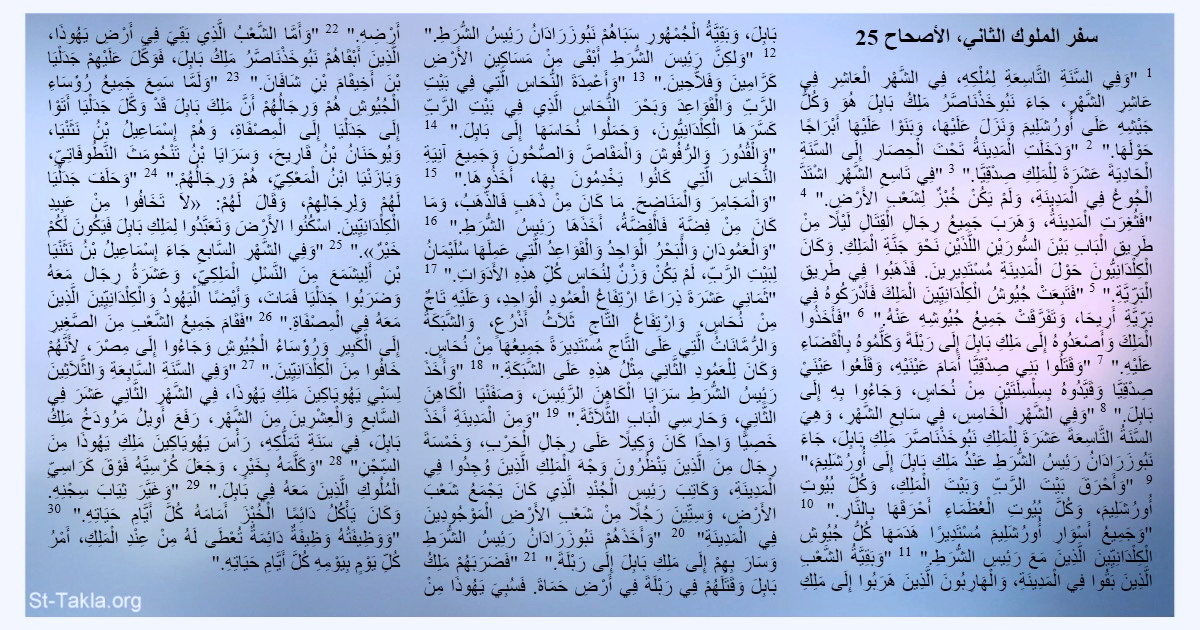 سفر الملوك الثاني، الأصحاح 25
1 "وَفِي السَّنَةِ التَّاسِعَةِ لِمُلْكِهِ، فِي الشَّهْرِ الْعَاشِرِ فِي
عَاشِرِ الشَّهْرِ، جَاءَ نَبُوخَذْنَاصَّرُ مَلِكُ بَابِلَ هُوَ وَكُلُّ
جَيْشِهِ عَلَى أُورُشَلِيمَ وَنَزَلَ عَلَيْهَا، وَبَنَوْا عَلَيْهَا أَبْرَاجًا
حَوْلَهَا." 2 "وَدَخَلَتِ الْمَدِينَةُ تَحْتَ الْحِصَارِ إِلَى السَّنَةِ
الْحَادِيَةَ عَشَرَةَ لِلْمَلِكِ صِدْقِيَّا." 3 "فِي تَاسِعِ الشَّهْرِ اشْتَدَّ
الْجُوعُ فِي الْمَدِينَةِ، وَلَمْ يَكُنْ خُبْزٌ لِشَعْبِ الأَرْضِ." 4
"فَثُغِرَتِ الْمَدِينَةُ، وَهَرَبَ جَمِيعُ رِجَالِ الْقِتَالِ لَيْلاً مِنْ
طَرِيقِ الْبَابِ بَيْنَ السُّورَيْنِ اللَّذَيْنِ نَحْوَ جَنَّةِ الْمَلِكِ. وَكَانَ
الْكِلْدَانِيُّونَ حَوْلَ الْمَدِينَةِ مُسْتَدِيرِينَ. فَذَهَبُوا فِي طَرِيقِ
الْبَرِّيَّةِ." 5 "فَتَبِعَتْ جُيُوشُ الْكِلْدَانِيِّينَ الْمَلِكَ فَأَدْرَكُوهُ فِي
بَرِّيَّةِ أَرِيحَا، وَتَفَرَّقَتْ جَمِيعُ جُيُوشِهِ عَنْهُ." 6 "فَأَخَذُوا
الْمَلِكَ وَأَصْعَدُوهُ إِلَى مَلِكِ بَابِلَ إِلَى رَبْلَةَ وَكَلَّمُوهُ بِالْقَضَاءِ
عَلَيْهِ." 7 "وَقَتَلُوا بَنِي صِدْقِيَّا أَمَامَ عَيْنَيْهِ، وَقَلَعُوا عَيْنَيْ
صِدْقِيَّا وَقَيَّدُوهُ بِسِلْسِلَتَيْنِ مِنْ نُحَاسٍ، وَجَاءُوا بِهِ إِلَى
بَابِلَ." 8 "وَفِي الشَّهْرِ الْخَامِسِ، فِي سَابِعِ الشَّهْرِ، وَهِيَ
السَّنَةُ التَّاسِعَةَ عَشَرَةَ لِلْمَلِكِ نَبُوخَذْنَاصَّرَ مَلِكِ بَابِلَ، جَاءَ
نَبُوزَرَادَانُ رَئِيسُ الشُّرَطِ عَبْدُ مَلِكِ بَابِلَ إِلَى أُورُشَلِيمَ،"
9 "وَأَحْرَقَ بَيْتَ الرَّبِّ وَبَيْتَ الْمَلِكِ، وَكُلَّ بُيُوتِ
أُورُشَلِيمَ، وَكُلَّ بُيُوتِ الْعُظَمَاءِ أَحْرَقَهَا بِالنَّارِ." 10
"وَجَمِيعُ أَسْوَارِ أُورُشَلِيمَ مُسْتَدِيرًا هَدَمَهَا كُلُّ جُيُوشِ
الْكِلْدَانِيِّينَ الَّذِينَ مَعَ رَئِيسِ الشُّرَطِ." 11 "وَبَقِيَّةُ الشَّعْبِ
الَّذِينَ بَقُوا فِي الْمَدِينَةِ، وَالْهَارِبُونَ الَّذِينَ هَرَبُوا إِلَى مَلِكِ
بَابِلَ، وَبَقِيَّةُ الْجُمْهُورِ سَبَاهُمْ نَبُوزَرَادَانُ رَئِيسُ الشُّرَطِ."
12 "وَلكِنَّ رَئِيسَ الشُّرَطِ أَبْقَى مِنْ مَسَاكِينِ الأَرْضِ
كَرَّامِينَ وَفَلاَّحِينَ." 13 "وَأَعْمِدَةَ النُّحَاسِ الَّتِي فِي بَيْتِ
الرَّبِّ وَالْقَوَاعِدَ وَبَحْرَ النُّحَاسِ الَّذِي فِي بَيْتِ الرَّبِّ
كَسَّرَهَا الْكِلْدَانِيُّونَ، وَحَمَلُوا نُحَاسَهَا إِلَى بَابِلَ." 14
"وَالْقُدُورَ وَالرُّفُوشَ وَالْمَقَاصَّ وَالصُّحُونَ وَجَمِيعَ آنِيَةِ
النُّحَاسِ الَّتِي كَانُوا يَخْدِمُونَ بِهَا، أَخَذُوهَا." 15
"وَالْمَجَامِرَ وَالْمَنَاضِحَ. مَا كَانَ مِنْ ذَهَبٍ فَالذَّهَبُ، وَمَا
كَانَ مِنْ فِضَّةٍ فَالْفِضَّةُ، أَخَذَهَا رَئِيسُ الشُّرَطِ." 16
"وَالْعَمُودَانِ وَالْبَحْرُ الْوَاحِدُ وَالْقَوَاعِدُ الَّتِي عَمِلَهَا سُلَيْمَانُ
لِبَيْتِ الرَّبِّ، لَمْ يَكُنْ وَزْنٌ لِنُحَاسِ كُلِّ هذِهِ الأَدَوَاتِ." 17
"ثَمَانِي عَشَرَةَ ذِرَاعًا ارْتِفَاعُ الْعَمُودِ الْوَاحِدِ، وَعَلَيْهِ تَاجٌ
مِنْ نُحَاسٍ، وَارْتِفَاعُ التَّاجِ ثَلاَثُ أَذْرُعٍ، وَالشَّبَكَةُ
وَالرُّمَّانَاتُ الَّتِي عَلَى التَّاجِ مُسْتَدِيرَةً جَمِيعُهَا مِنْ نُحَاسٍ.
وَكَانَ لِلْعَمُودِ الثَّانِي مِثْلُ هذِهِ عَلَى الشَّبَكَةِ." 18 "وَأَخَذَ
رَئِيسُ الشُّرَطِ سَرَايَا الْكَاهِنَ الرَّئِيسَ، وَصَفَنْيَا الْكَاهِنَ
الثَّانِي، وَحَارِسِي الْبَابِ الثَّلاَثَةَ." 19 "وَمِنَ الْمَدِينَةِ أَخَذَ
خَصِيًّا وَاحِدًا كَانَ وَكِيلاً عَلَى رِجَالِ الْحَرْبِ، وَخَمْسَةَ
رِجَال مِنَ الَّذِينَ يَنْظُرُونَ وَجْهَ الْمَلِكِ الَّذِينَ وُجِدُوا فِي
الْمَدِينَةِ، وَكَاتِبَ رَئِيسِ الْجُنْدِ الَّذِي كَانَ يَجْمَعُ شَعْبَ
الأَرْضِ، وَسِتِّينَ رَجُلاً مِنْ شَعْبِ الأَرْضِ الْمَوْجُودِينَ
فِي الْمَدِينَةِ" 20 "وَأَخَذَهُمْ نَبُوزَرَادَانُ رَئِيسُ الشُّرَطِ
وَسَارَ بِهِمْ إِلَى مَلِكِ بَابِلَ إِلَى رَبْلَةَ." 21 "فَضَرَبَهُمْ مَلِكُ
بَابِلَ وَقَتَلَهُمْ فِي رَبْلَةَ فِي أَرْضِ حَمَاةَ. فَسُبِيَ يَهُوذَا مِنْ
أَرْضِهِ." 22 "وَأَمَّا الشَّعْبُ الَّذِي بَقِيَ فِي أَرْضِ يَهُوذَا،
الَّذِينَ أَبْقَاهُمْ نَبُوخَذْنَاصَّرُ مَلِكُ بَابِلَ، فَوَكَّلَ عَلَيْهِمْ جَدَلْيَا
بْنَ أَخِيقَامَ بْنِ شَافَانَ." 23 "وَلَمَّا سَمِعَ جَمِيعُ رُؤَسَاءِ
الْجُيُوشِ هُمْ وَرِجَالُهُمْ أَنَّ مَلِكَ بَابِلَ قَدْ وَكَّلَ جَدَلْيَا أَتَوْا
إِلَى جَدَلْيَا إِلَى الْمِصْفَاةِ، وَهُمْ إِسْمَاعِيلُ بْنُ نَثَنْيَا،
وَيُوحَنَانُ بْنُ قَارِيحَ، وَسَرَايَا بْنُ تَنْحُومَثَ النَّطُوفَاتِيِّ،
وَيَازَنْيَا ابْنُ الْمَعْكِيِّ، هُمْ وَرِجَالُهُمْ." 24 "وَحَلَفَ جَدَلْيَا
لَهُمْ وَلِرِجَالِهِمْ، وَقَالَ لَهُمْ: «لاَ تَخَافُوا مِنْ عَبِيدِ
الْكِلْدَانِيِّينَ. اسْكُنُوا الأَرْضَ وَتَعَبَّدُوا لِمَلِكِ بَابِلَ فَيَكُونَ لَكُمْ
خَيْرٌ»." 25 "وَفِي الشَّهْرِ السَّابعِ جَاءَ إِسْمَاعِيلُ بْنُ نَثَنْيَا
بْنِ أَلِيشَمَعَ مِنَ النَّسْلِ الْمَلِكِيِّ، وَعَشْرَةُ رِجَال مَعَهُ
وَضَرَبُوا جَدَلْيَا فَمَاتَ، وَأَيْضًا الْيَهُودَ وَالْكِلْدَانِيِّينَ الَّذِينَ
مَعَهُ فِي الْمِصْفَاةِ." 26 "فَقَامَ جَمِيعُ الشَّعْبِ مِنَ الصَّغِيرِ
إِلَى الْكَبِيرِ وَرُؤَسَاءُ الْجُيُوشِ وَجَاءُوا إِلَى مِصْرَ، لأَنَّهُمْ
خَافُوا مِنَ الْكِلْدَانِيِّينَ." 27 "وَفِي السَّنَةِ السَّابِعَةِ وَالثَّلاَثِينَ
لِسَبْيِ يَهُويَاكِينَ مَلِكِ يَهُوذَا، فِي الشَّهْرِ الثَّانِي عَشَرَ فِي
السَّابعِ وَالْعِشْرِينَ مِنَ الشَّهْرِ، رَفَعَ أَوِيلُ مَرُودَخُ مَلِكُ
بَابِلَ، فِي سَنَةِ تَمَلُّكِهِ، رَأْسَ يَهُويَاكِينَ مَلِكِ يَهُوذَا مِنَ
السِّجْنِ" 28 "وَكَلَّمَهُ بِخَيْرٍ، وَجَعَلَ كُرْسِيَّهُ فَوْقَ كَرَاسِيِّ
الْمُلُوكِ الَّذِينَ مَعَهُ فِي بَابِلَ." 29 "وَغَيَّرَ ثِيَابَ سِجْنِهِ.
وَكَانَ يَأْكُلُ دَائِمًا الْخُبْزَ أَمَامَهُ كُلَّ أَيَّامِ حَيَاتِهِ." 30
"وَوَظِيفَتُهُ وَظِيفَةٌ دَائِمَةٌ تُعْطَى لَهُ مِنْ عِنْدِ الْمَلِكِ، أَمْرُ
كُلِّ يَوْمٍ بِيَوْمِهِ كُلَّ أَيَّامِ حَيَاتِهِ."
St-Takla.org